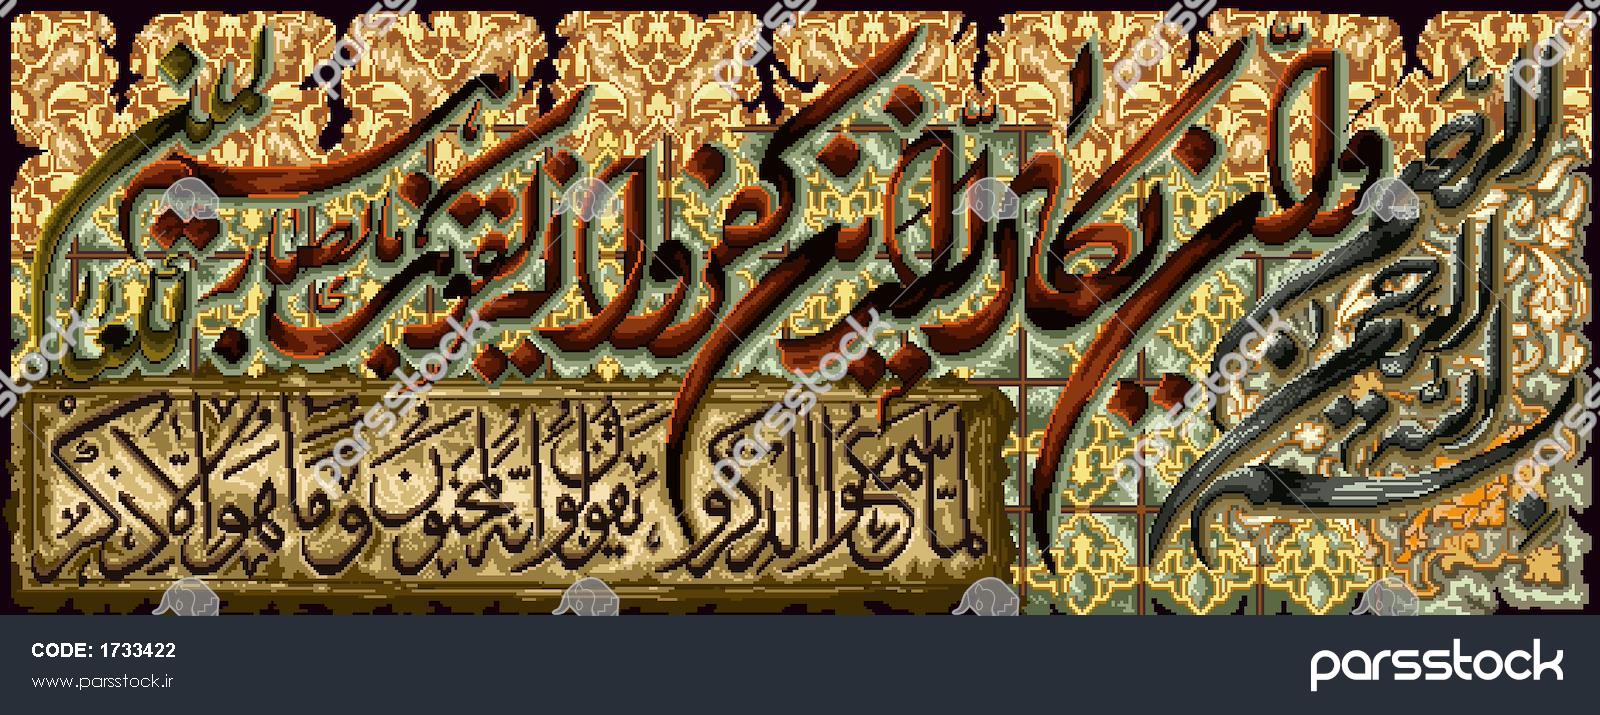 بسم الله الرحمن الرحیم
و ان یکاد الذین کفروا لیزلقونک بابصارهم
لما سمعوا الذکر و یقولون انه لمجنون و ما هو الا ذکر
للعالمین
parsstock
CODE: 1733422
www.parsstock.ir
parsstock